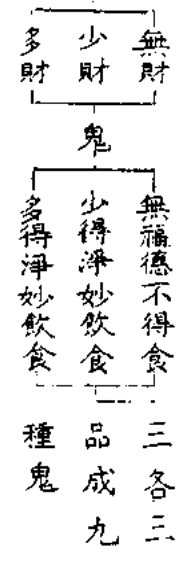 無財
少財
多財
鬼
無福德不得食
少得淨妙飲食
多得淨妙飲食
三各三
品成九
種鬼